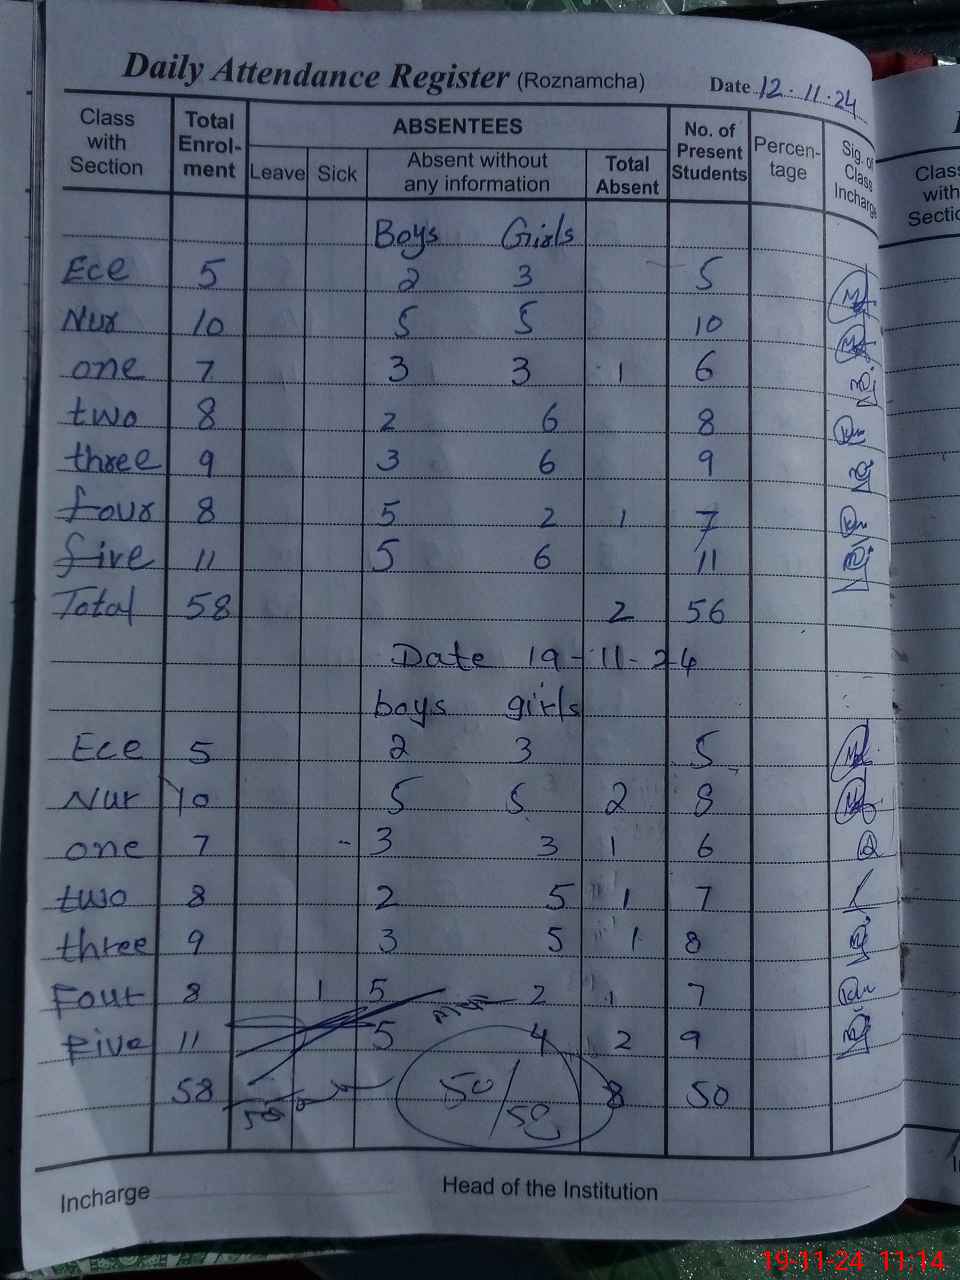 Daily Attendance Register (Roznamcha) Date 12.11.24
Class with Section Total Enrol-ment ABSENTEES No. of Present Students Percen-tage Sig. of Class Incharge
Leave Sick Absent without any information Total Absent
Boys Girls
Ece 5 2 3 5
Nur 10 5 5 10
one 7 3 3 1 6
two 8 2 6 8
three 9 3 6 9
four 8 5 2 1 7
five 11 5 6 11
Total 58 2 56
Date 19-11-24
boys girls
Ece 5 2 3 5
Nur 10 5 5 2 8
one 7 - 3 3 1 6
two 8 2 5 1 7
three 9 3 5 1 8
Four 8 1 5 2 1 7
Five 11 5 4 2 9
58 50/58 8 50
Incharge Head of the Institution
Class with Sectio
19-11-24 11:14